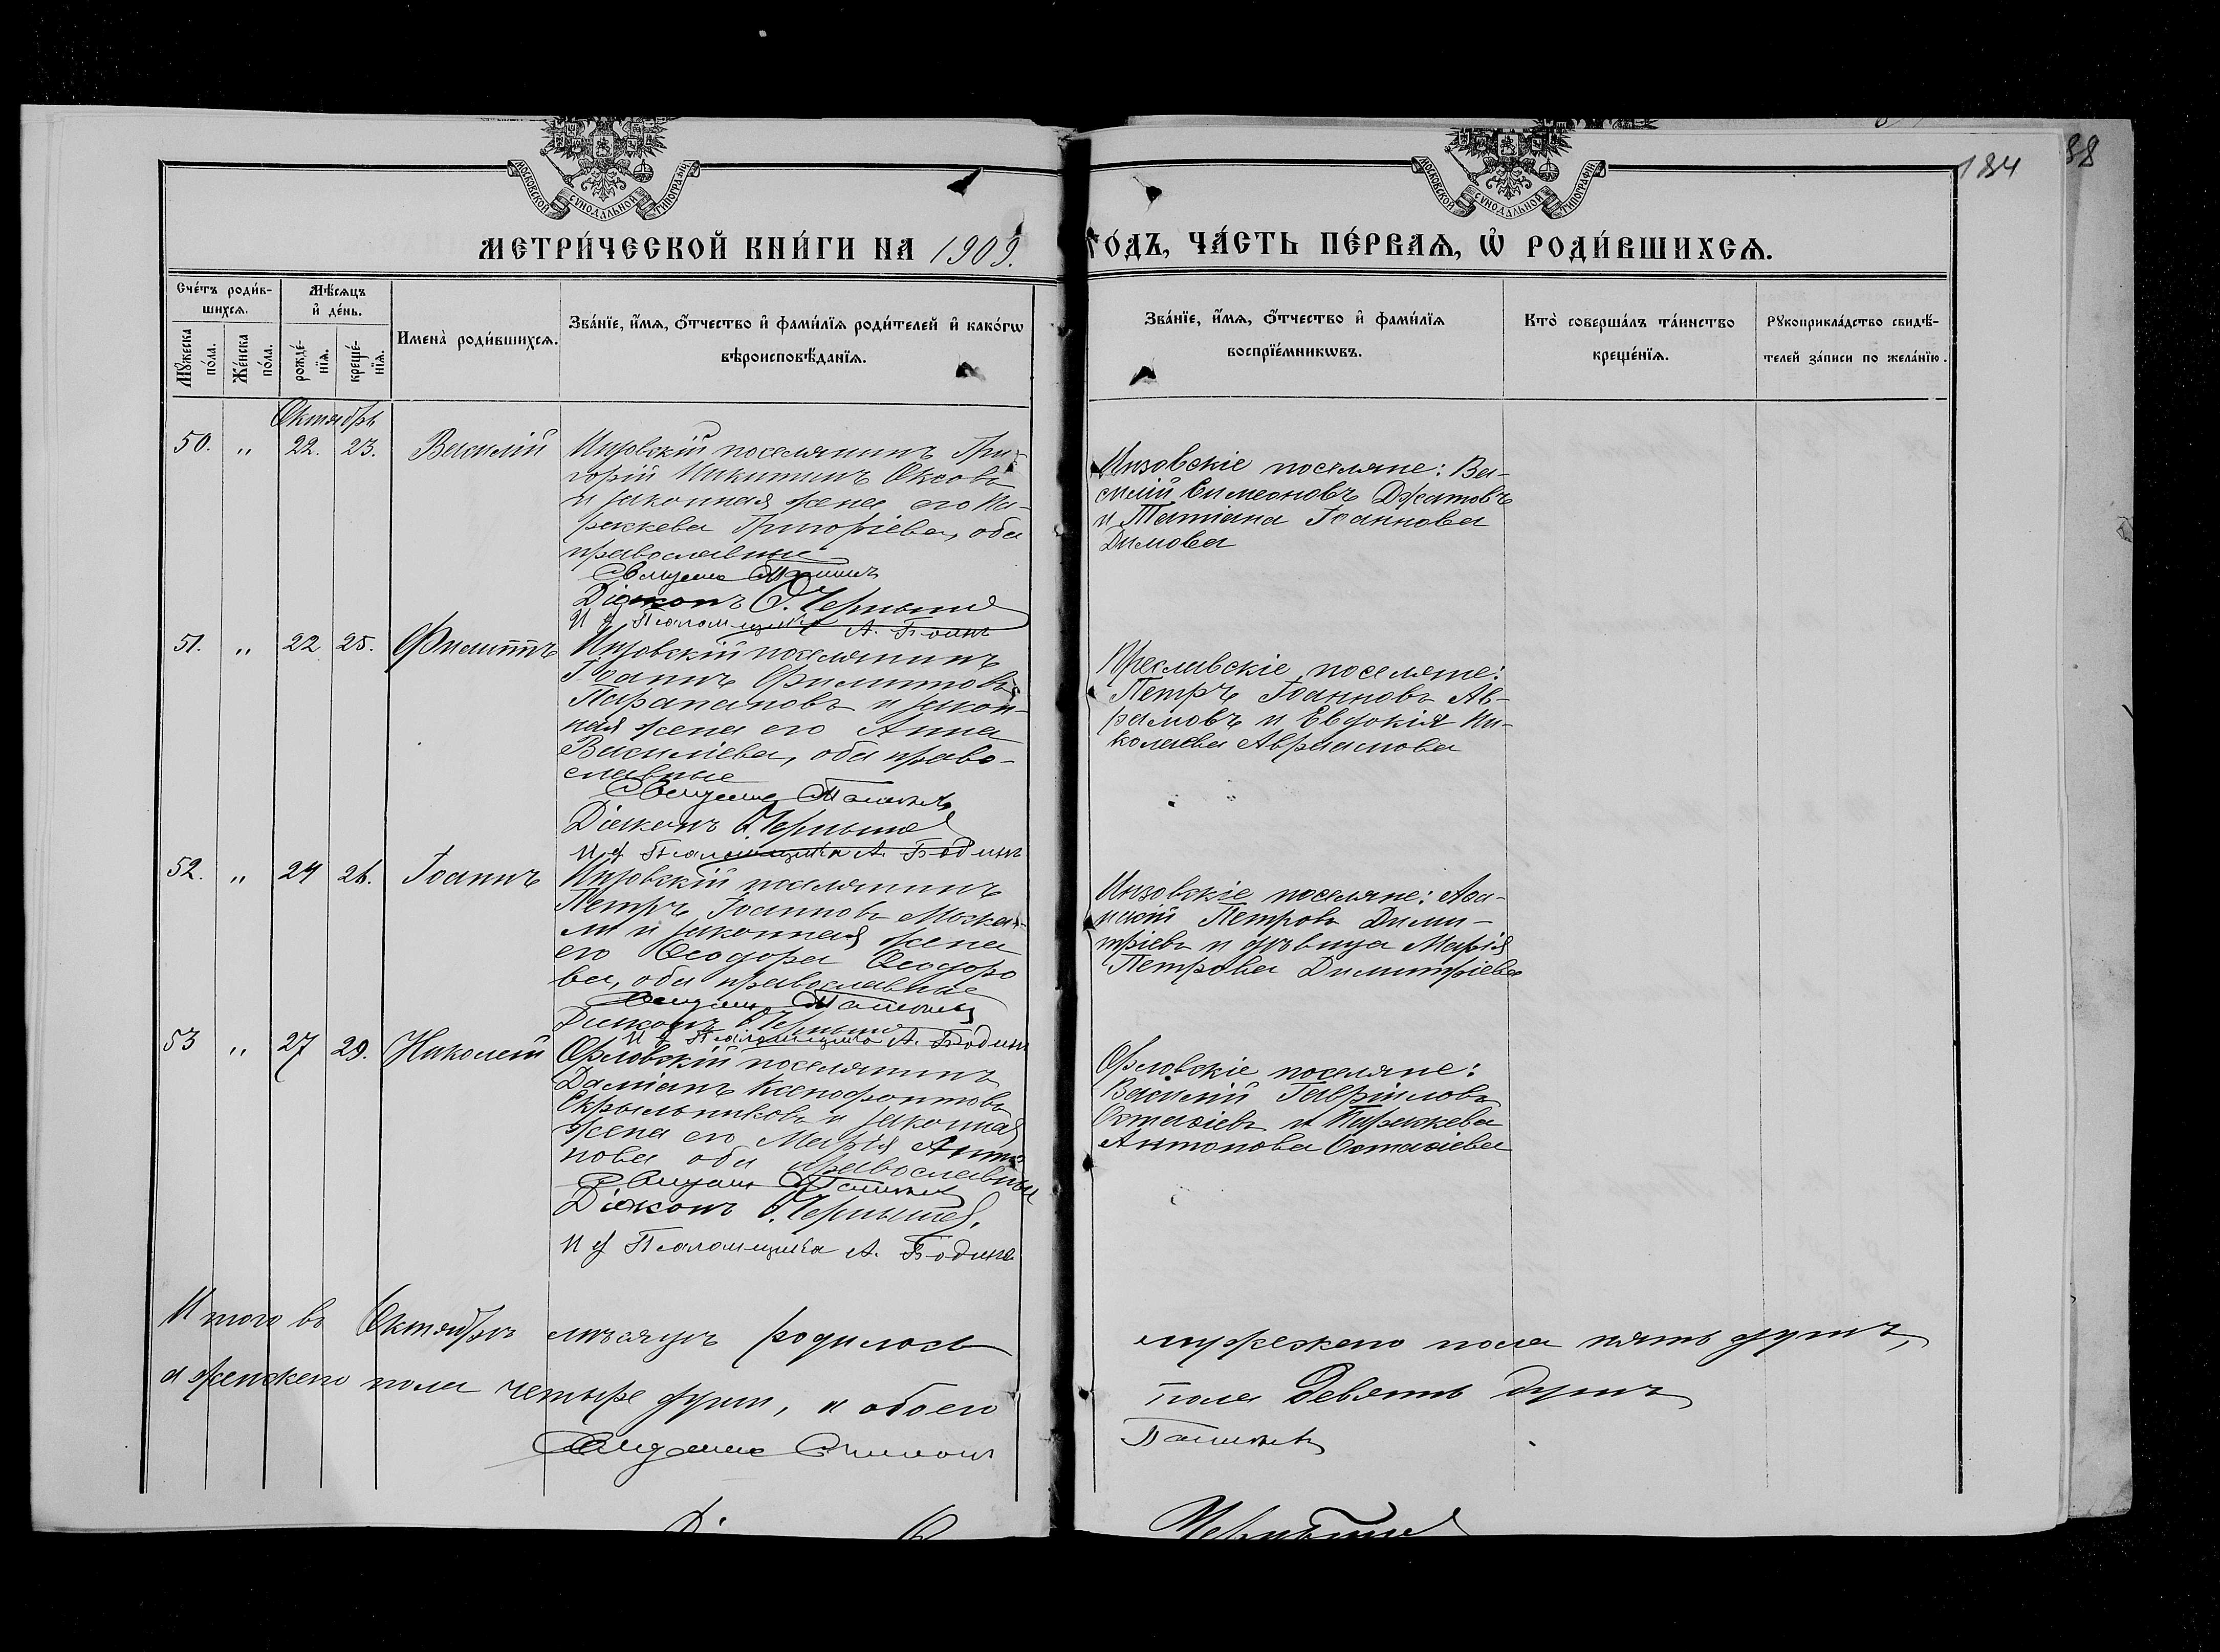 184
38
МОСКОВСКОЙ СѴНОДАЛЬНОЙ ТИПОГРАФІИ
МОСКОВСКОЙ СѴНОДАЛЬНОЙ ТИПОГРАФІИ
МЕТРИ́ЧЕСКОЙ КНИ́ГИ НА 1909.
ГО́ДЪ, ЧА́СТЬ ПЕ́РВАѦ, Ѡ҆ РОДИ́ВШИХСѦ.
Сче́тъ роди́в-
шихсѧ.
Мꙋ́жеска по́ла.
Же́нска по́ла.
Мѣ́сѧцъ
и҆ де́нь.
рожде́-
нїѧ.
креще́-
нїѧ.
Имена̀ роди́вшихсѧ.
Зва́нїе, и҆́мѧ, ѻ҆́тчество и҆ фами́лїѧ роди́телей и҆ како́гѡ
вѣроисповѣ́данїѧ.
Зва́нїе, и҆́мѧ, ѻ҆́тчество и҆ фами́лїѧ
воспрїе́мникѡвъ.
Кто̀ соверша́лъ та́инство
креще́нїѧ.
Рꙋкоприкла́дство свидѣ́-
телей за́писи по жела́нїю.
Октябрь
50. " 22. 23. Василій
Инзовскій поселянинъ Гри-
горій Никитинъ Оксовъ
и законная жена его Па-
раскева Григоріева, оба
православные
Діаконъ Чернышев
И д Псаломщика А. Бодинъ
Инзовскіе поселяне: Ва-
силій Симеоновъ Джатовъ
и Татіана Іоаннова
Димова
51. " 22 25. Филиппъ
Инзовскій поселянинъ
Іоаннъ Филипповъ
Парапановъ и закон-
ная жена его Анна
Василіева, оба право-
славные
Діаконъ Чернышев
И д Псаломщика А. Бодинъ
Преславскіе поселяне:
Петръ Іоанновъ Ав-
рамовъ и Евдокія Ни-
колаева Авраамова
52. " 24 26. Іоаннъ
Инзовскій поселянинъ
Петръ Іоанновъ Моска-
ли и законная жена
его Ѳеодора Ѳеодоро
ва, оба православные
Діаконъ Чернышев
И д Псаломщика А. Бодинъ
Инзовскіе поселяне: Аѳа-
насій Петровъ Дими-
тріевъ и дѣвица Марія
Петрова Димитріева
53 " 27 29. Николай
Орловскій поселянинъ
Даміанъ Ксенофонтовъ
Скрыльниковъ и законная
жена его Марія Анто
нова оба православные
Діаконъ Чернышев.
И д Псаломщика А. Бодинъ
Орловскіе поселяне:
Василій Гавріиловъ
Остасіевъ и Параскева
Антонова Остасіева
Итого въ Октябрѣ мѣсяцѣ родилось
мужескаго пола пять душъ,
а женскаго пола четыре души, а обоего
пола девять душъ
Чернышев